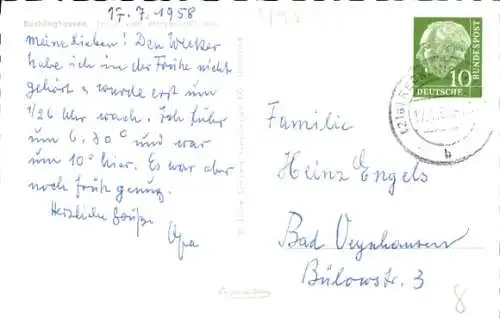 17.7.1958
Recklinghausen
Meine Lieben! Den Wecker
habe ich in der Frühe nicht
gehört u. wurde erst um
1/26 Uhr wach. Ich fuhr
um 6.30° und war
um 10° hier. Es war aber
noch früh genug.
Herzliche Grüße
Opa
10
DEUTSCHE
BUNDESPOST
(21a)
b
Familie
Heinz Engels
Bad Oeynhausen
Bülowstr. 3
8